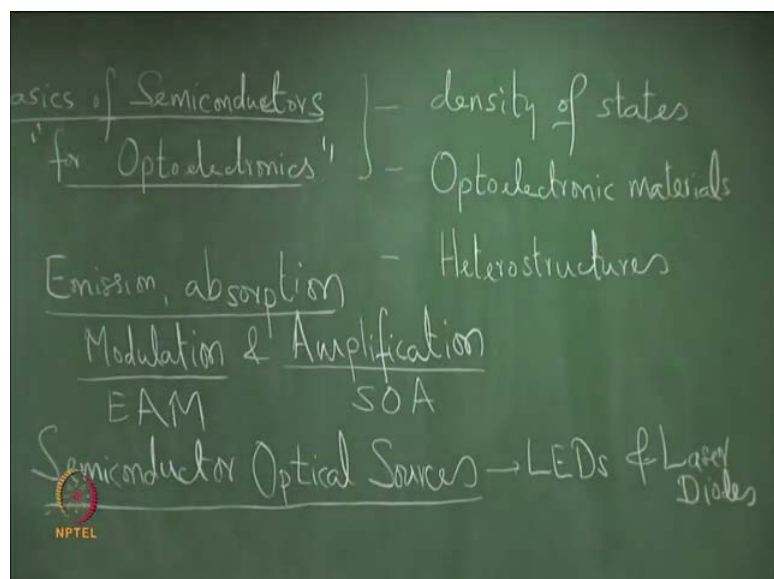 asics of Semiconductors } - density of states
"for Optoelectronics" - Optoelectronic materials
- Heterostructures
Emission, absorption
Modulation & Amplification
EAM SOA
Semiconductor Optical Sources → LEDs & Laser
Diodes
NPTEL